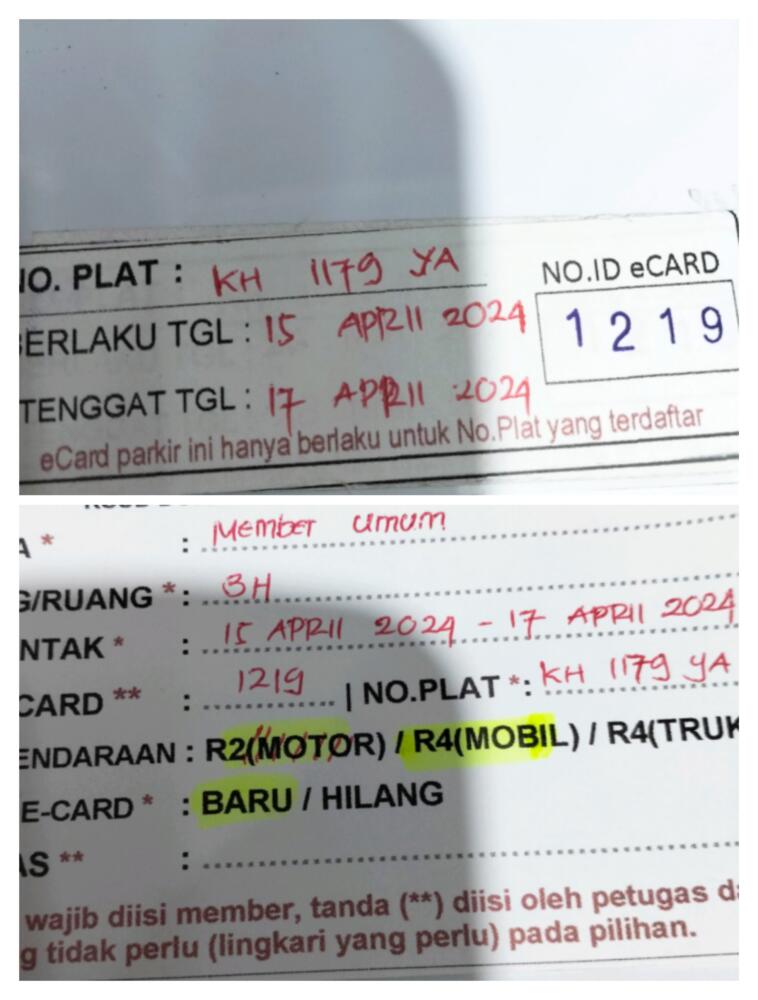 NO. PLAT : KH 1179 YA
NO.ID eCARD
BERLAKU TGL : 15 APRIl 2024
1219
TENGGAT TGL : 17 APRIl 2024
eCard parkir ini hanya berlaku untuk No.Plat yang terdaftar
A * : Member umum
G/RUANG * : 3H
NTAK * : 15 APRIl 2024 - 17 APRIl 2024
CARD ** : 1219 | NO.PLAT *: KH 1179 YA
ENDARAAN : R2(MOTOR) / R4(MOBIL) / R4(TRUK
E-CARD * : BARU / HILANG
AS ** :
wajib diisi member, tanda (**) diisi oleh petugas da
g tidak perlu (lingkari yang perlu) pada pilihan.